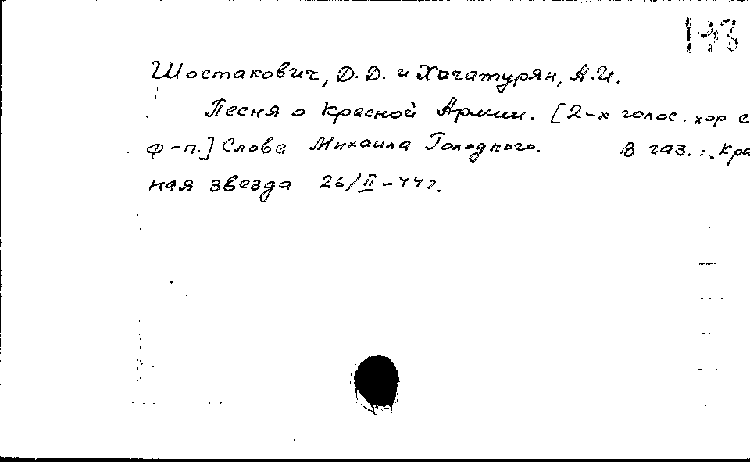 Шостакович, Д.Д. и Хачатурян, А.И.
Песня о Красной Армии. [2-х голос. хор с
ф-п.] Слова Михаила Голодного. В газ.: Кра
ная звезда 26/II-44г.